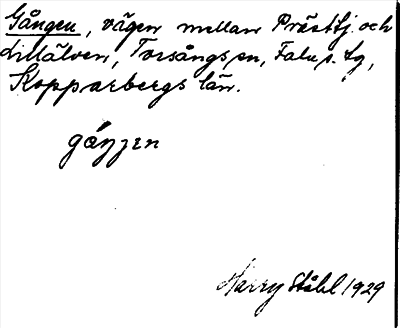 Gången, vägen mellan Prästtj. och
Lillälven, Torsångs sn, Falu s. tg,
Kopparbergs län.
gåŋŋen
Harry Ståhl 1929